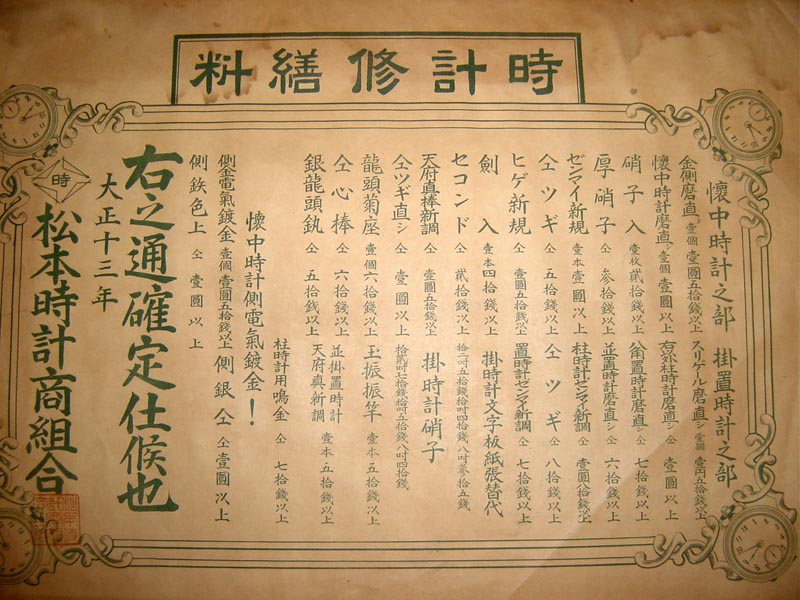 時計修繕料
懷中時計之部 掛置時計之部
金側磨直シ 壹個 壹圓五拾錢以上 スリゲール磨直シ 壹個 壹円五拾錢以上
懷中時計磨直シ 壹個 壹圓以上 右以外柱時計磨直シ 仝 壹圓以上
硝子入 壹枚 貳拾錢以上 置時計磨直 仝 七拾錢以上
厚硝子 仝 参拾錢以上 並置時計磨直シ 仝 六拾錢以上
ゼンマイ新規 壹本 壹圓以上 柱時計ゼンマイ新調 仝 壹圓八拾錢以上
仝ツギ 仝 五拾錢以上 仝ツギ 仝 八拾錢以上
ヒゲ新規 仝 壹圓五拾錢以上 置時計ゼンマイ新調 仝 七拾錢以上
劍入 壹本 四拾錢以上 掛時計文字板紙張替代
セコンド 仝 貳拾錢以上 拾二吋五拾錢 拾吋四拾錢 八吋参拾五錢
天府真棒新調 仝 壹圓五拾錢以上 掛時計硝子
仝ツギ直シ 仝 壹圓以上 拾貳吋七拾錢 拾吋五拾錢 八吋四拾錢
龍頭菊座 壹個 六拾錢以上 玉振振竿 壹本 五拾錢以上
仝心棒 仝 六拾錢以上 並掛置時計
銀龍頭釻 仝 五拾錢以上 天府真新調 壹本 五拾錢以上
柱時計用鳴金 仝 七拾錢以上
懷中時計側電氣鍍金!
側金電氣鍍金 壹個 壹圓五拾錢以上 側銀仝 仝 壹圓以上
側鉄色上 仝 壹圓以上
右之通確定仕候也
大正十三年
時 松本時計商組合